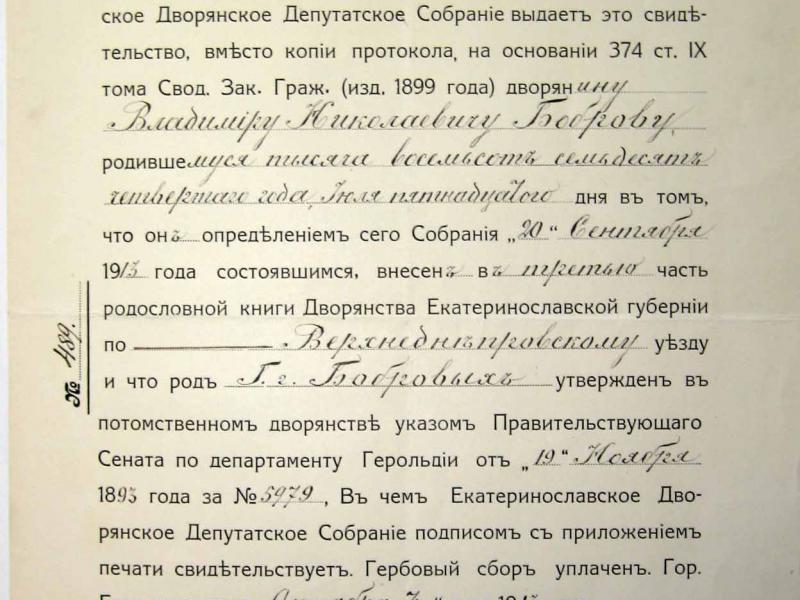 ское Дворянское Депутатское Собраніе выдаетъ это свидѣ-
тельство, вмѣсто копіи протокола, на основаніи 374 ст. IX
тома Свод. Зак. Граж. (изд. 1899 года) дворянину
Владиміру Николаевичу Боброву,
родившемуся тысяча восемьсотъ семьдесятъ
четвертаго года, Іюля пятнадцатого дня въ томъ,
что онъ опредѣленіемъ сего Собранія „20“ Сентября
1913 года состоявшимся, внесенъ въ третью часть
родословной книги Дворянства Екатеринославской губерніи
по Верхнеднѣпровскому уѣзду
и что родъ Г.г. Бобровыхъ утвержденъ въ
потомственном дворянствѣ указомъ Правительствующаго
Сената по департаменту Герольдіи отъ „19“ Ноября
1893 года за № 5979, Въ чемъ Екатеринославское Дво-
рянское Депутатское Собраніе подписомъ съ приложеніемъ
печати свидѣтельствуетъ. Гербовый сборъ уплаченъ. Гор.
№ 489.